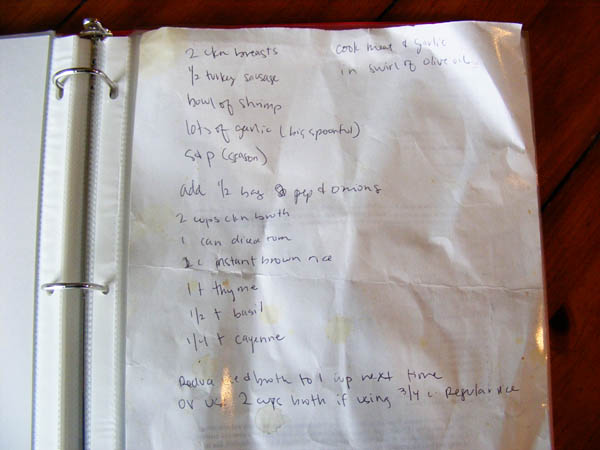 2 ckn breasts
1/2 turkey sausage
bowl of shrimp
lots of garlic (big spoonful)
s+p (season)
add 1/2 bag pep & onions
2 cups ckn broth
1 can diced tom
2 c instant brown rice
1 t thyme
1/2 t basil
1/4 t cayenne
cook meat & garlic
in swirl of olive oil
broth to 1 cup next time
or use 2 cups broth if using 3/4 c regular rice